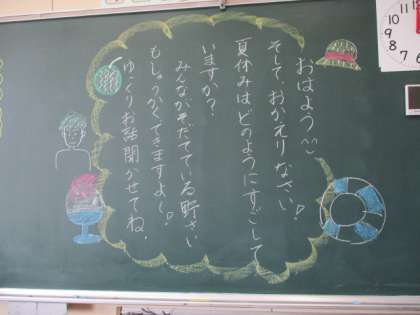 おはよう
そして、おかえりなさい!
夏休みは、どのようにすごして
いますか?
みんながそだてている野さい
もしゅうかくできますよ!
ゆっくりお話聞かせてね。